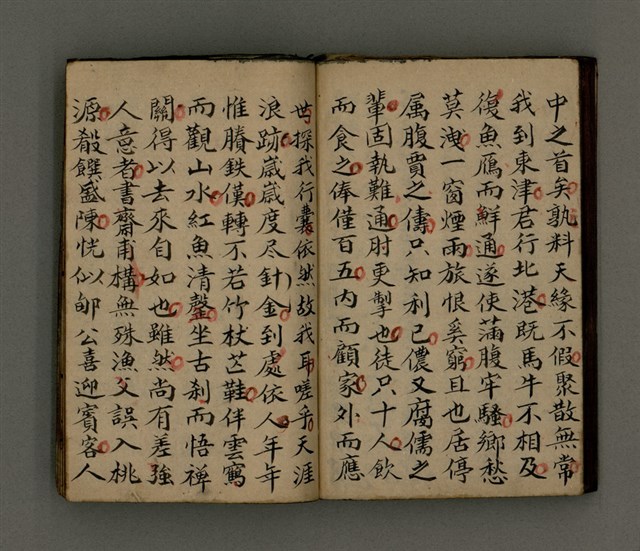 中之首矣孰料天緣不假聚散無常
我到東津君行北港既馬牛不相及
復魚鴈而鮮通遂使滿腹牢騷鄉愁
莫洩一窗煙雨旅恨奚窮且也居停
属腹賈之儔只知利己儂又腐儒之
輩固執難通肘更掣也徒只十人飲
而食之俸僅百五內而顧家外而應
世探我行囊依然故我耶嗟乎天涯
浪跡嵗嵗度尽針金到處依人年年
惟賸鉄僕轉不若竹杖芒鞋伴雲寫
而觀山水紅魚清磬坐古刹而悟禅
關得以去來自如也雖然尚有差強
人意者書齋甫構無殊漁父誤入桃
源殽饌盛陳恍似郇公喜迎賓客人